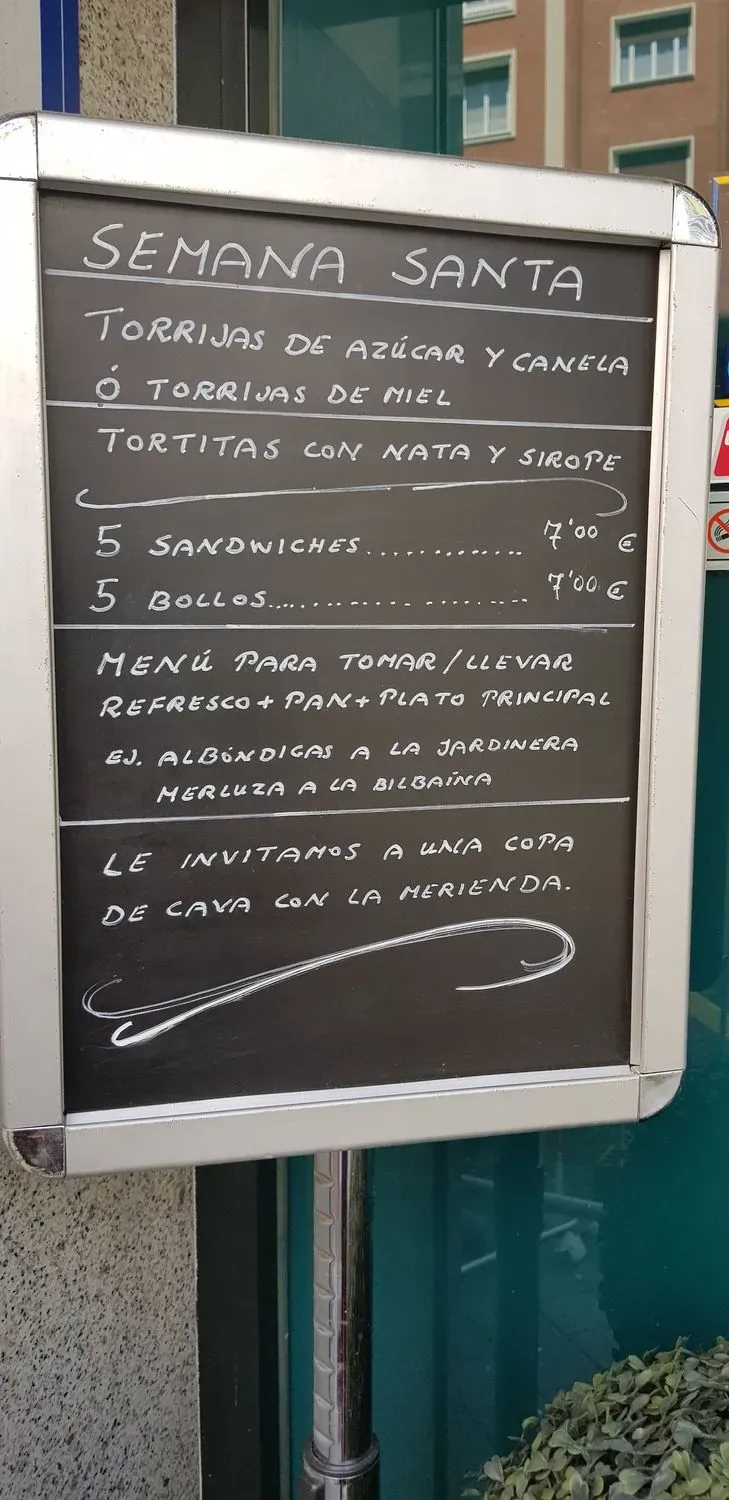 SEMANA SANTA
TORRIJAS DE AZÚCAR Y CANELA
Ó TORRIJAS DE MIEL
TORTITAS CON NATA Y SIROPE
5 SANDWICHES............. 7'00 €
5 BOLLOS................... 7'00 €
MENÚ PARA TOMAR/LLEVAR
REFRESCO + PAN + PLATO PRINCIPAL
EJ. ALBÓNDIGAS A LA JARDINERA
MERLUZA A LA BILBAÍNA
LE INVITAMOS A UNA COPA
DE CAVA CON LA MERIENDA.